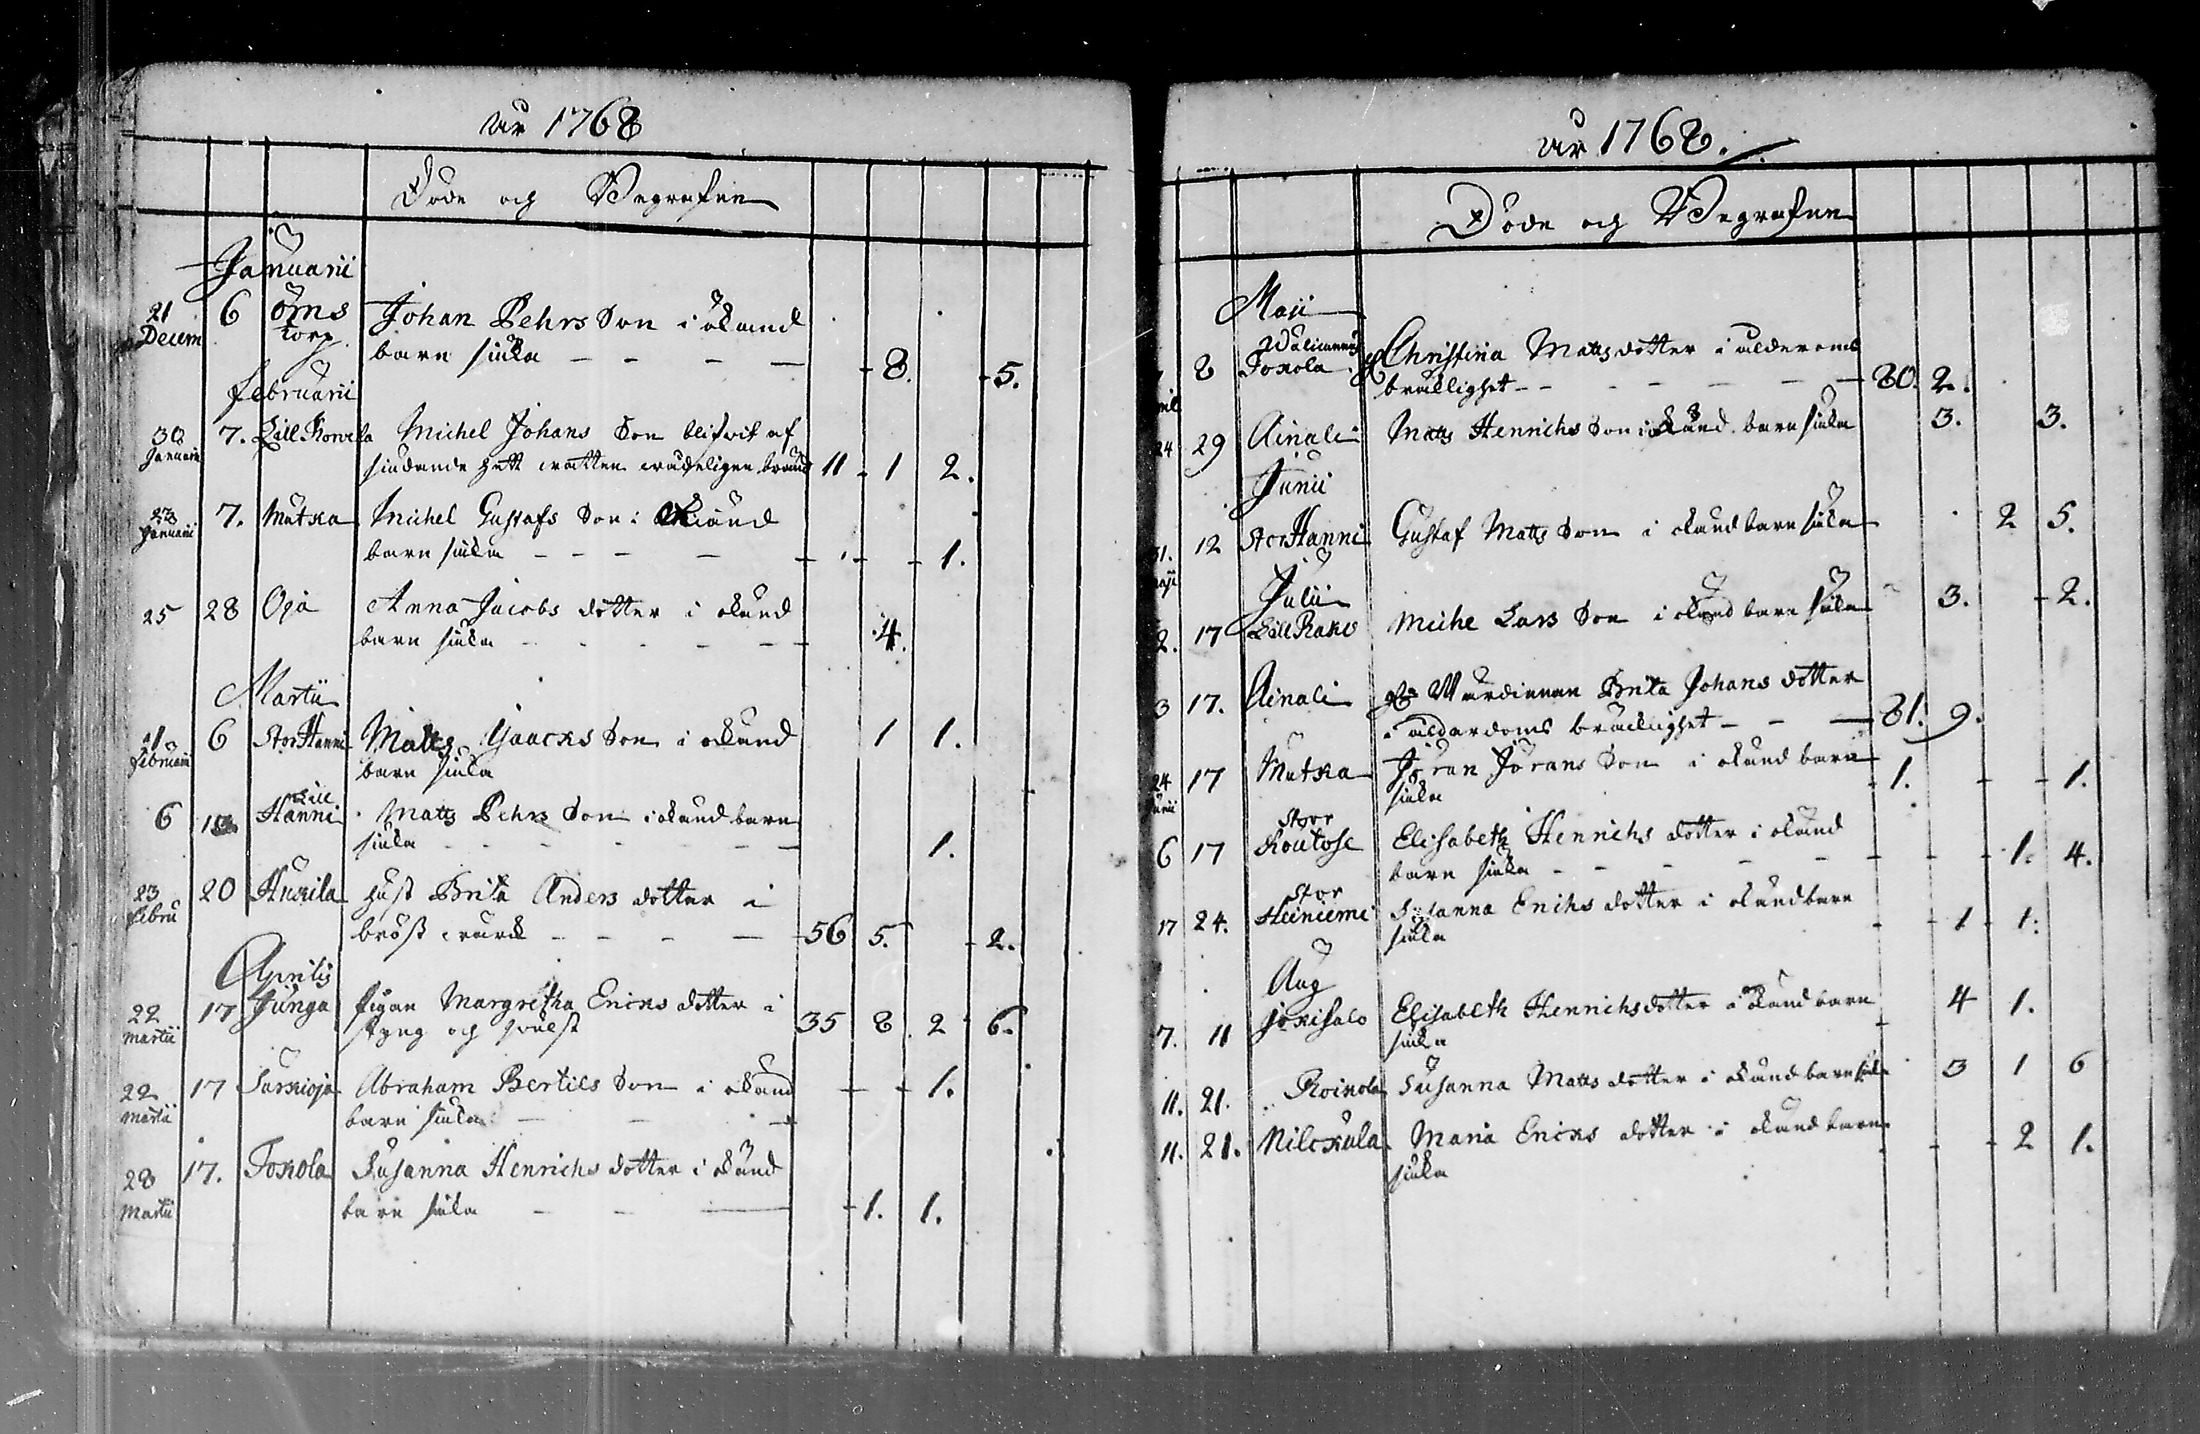 År 1768
Döde och Begrafne
Januarii
21 Decem 6 Öms torp Johan Pehrs Son i okänd
barn siuka - 8. - 5.
Februarii
30 Januarii 7. Lill Ronola Michel Johans Son blifvit af
siudande hett watten 11 - 1 2.
Januarii 7. Mutka Michel Gustafs Son i okiänd
barn siuka - - 1.
25 28 Oja Anna Jacobs dotter i okänd
barn siuka 4.
Martii
Februarii 6 Stor Hanni Matts Isaacks Son i okänd
barn siuka 1 1.
6 Lill Hanni Matts Pehrs Son i okänd barn
siuka 1.
23 Febru 20 Huxila Hust Brita Anders dotter i
bröst wärck 56 5. - 2.
Aprilis
22 Martii 17 Junga Pigan Margretha Ericks dotter i
styng och 35 8. 2 6.
22 Martii 17 Sarkioja Abraham Bertils Son i okänd
barn siuka - - 1.
28 Martii 17. Toxola Susanna Henrichs dotter i okänd
barn siuka - 1. 1.
År 1768.
Döde och Begrafne
Maji
8 Toxola Christina Matts dotter i ålderoms
bräcklighet 80. 2.
24 29 Ainali Matts Henrichs Son i okänd barn siuka 3. 3.
Junii
31. Maji 12 Stor Hanni Gustaf Matts Son i okänd barn siuka 2 5.
Julii
2. 17 Lill Rako Miche Lars Son i okänd barn siuka 3. - 2.
3 17. Ainali Wärdinnan Brita Johans dotter
i ålderdoms bräcklighet 81. 9.
24 Junii 17 Mutka Jöran Jörans Son i okänd barn
siuka 1. - - 1.
6 17 Stor Koutose Elisabeth Henrichs dotter i okänd
barn siuka - - 1. 4.
17 24. Stor Heiniemi Susanna Erichs dotter i okänd barn
siuka - 1 - 1.
Aug
7. 11 Jokisalo Elisabeth Henrichs dotter i okänd barn
siuka 4 1.
11. 21. Roinola Susanna Matts dotter i okänd barn siuka 3 1 6
11. 21. Nilckula Maria Ericks dotter i okänd barn
siuka - - 2 1.